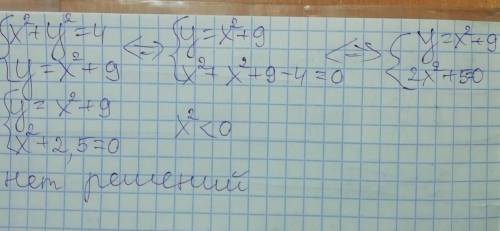 {x²+y²=4 {y=x²+9 {y=x²+9
{y=x²+9 <=> {x²+x²+9-4=0 <=> {2x²+5=0
{y=x²+9
{x²+2,5=0 x²<0
нет решений